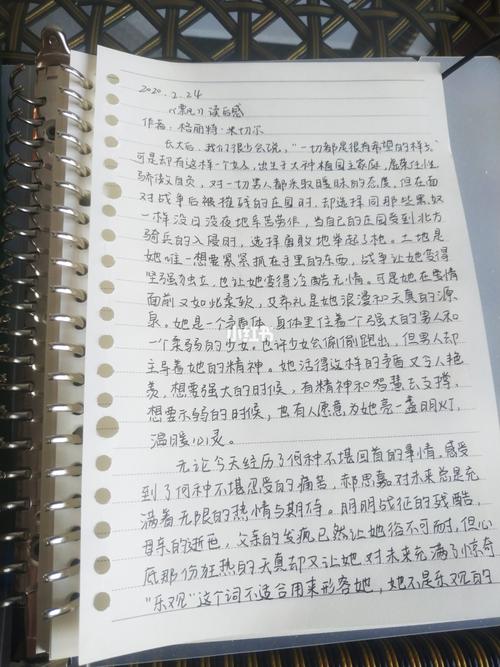 2020.2.24
《飘》读后感
作者：格丽特·米切尔
长大后，我们很少会说，"一切都是很有希望的样子"
可是却有这样一个女人，出生于大种植园主家庭，虽任性
骄傲自负，对一切男人都采取暧昧的态度，但在面
对战争后被摧残的庄园时，却选择同那些黑奴
一样没日没夜地辛苦劳作，当自己的庄园受到北方
骑兵的入侵时，选择勇敢地举起了枪。土地是
她唯一想要紧紧抓在手里的东西，战争让她变得
坚强独立，也让她变得冷酷无情。可是她在爱情
面前又如此柔软，艾希礼是她浪漫和天真的源
泉。她是一个矛盾体，身体里住着一个强大的男人和
一个柔弱的少女。也许少女会偷偷跑出，但男人却
主导着她的精神。她活得这样的矛盾又令人艳
羡，想要强大的时候，有精神和智慧去支撑，
想要示弱的时候，也有人愿意为她亮一盏明灯，
温暖心灵。
无论今天经历了何种不堪回首的事情，感受
到了何种不堪忍受的痛苦，郝思嘉对未来总是充
满着无限的热情与期待。明明战征的残酷，
母亲的逝世，父亲的发疯已然让她俗不可耐，但心
底那份狂热的天真却又让她对未来充满了惊奇
"乐观"这个词不适合用来形容她，她不是乐观的
小红书